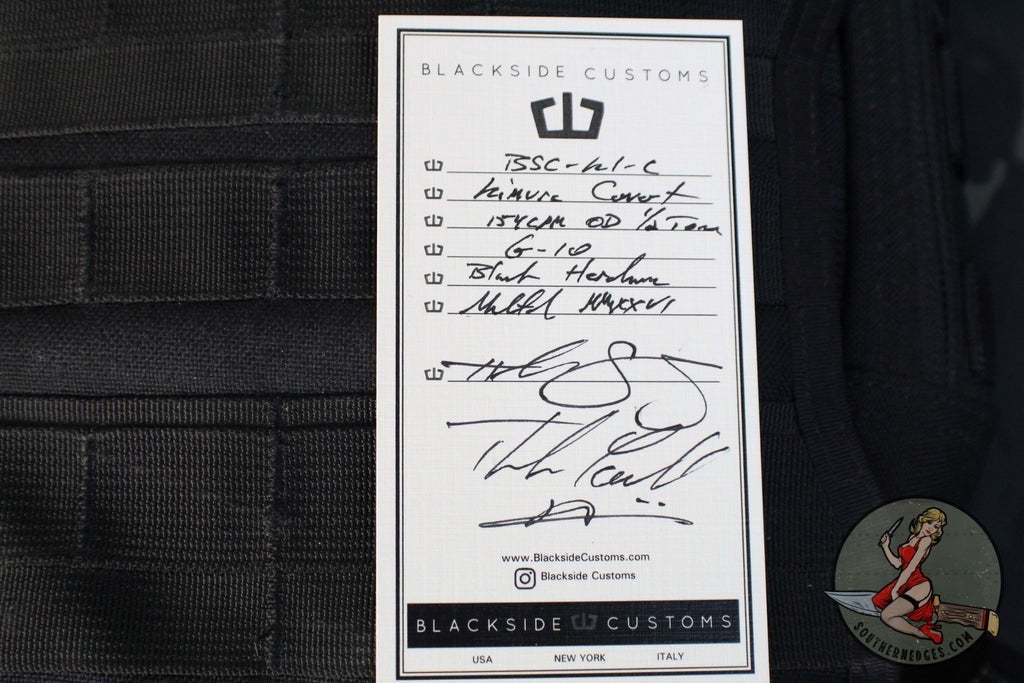 BLACKSIDE CUSTOMS
BSC-K1-C
Kimura Covert
154CPM OD 1/2
G-10
Black Hardware
MMXXVI
www.BlacksideCustoms.com
Blackside Customs
BLACKSIDE CUSTOMS
USA NEW YORK ITALY
SOUTHERNEDGES.COM